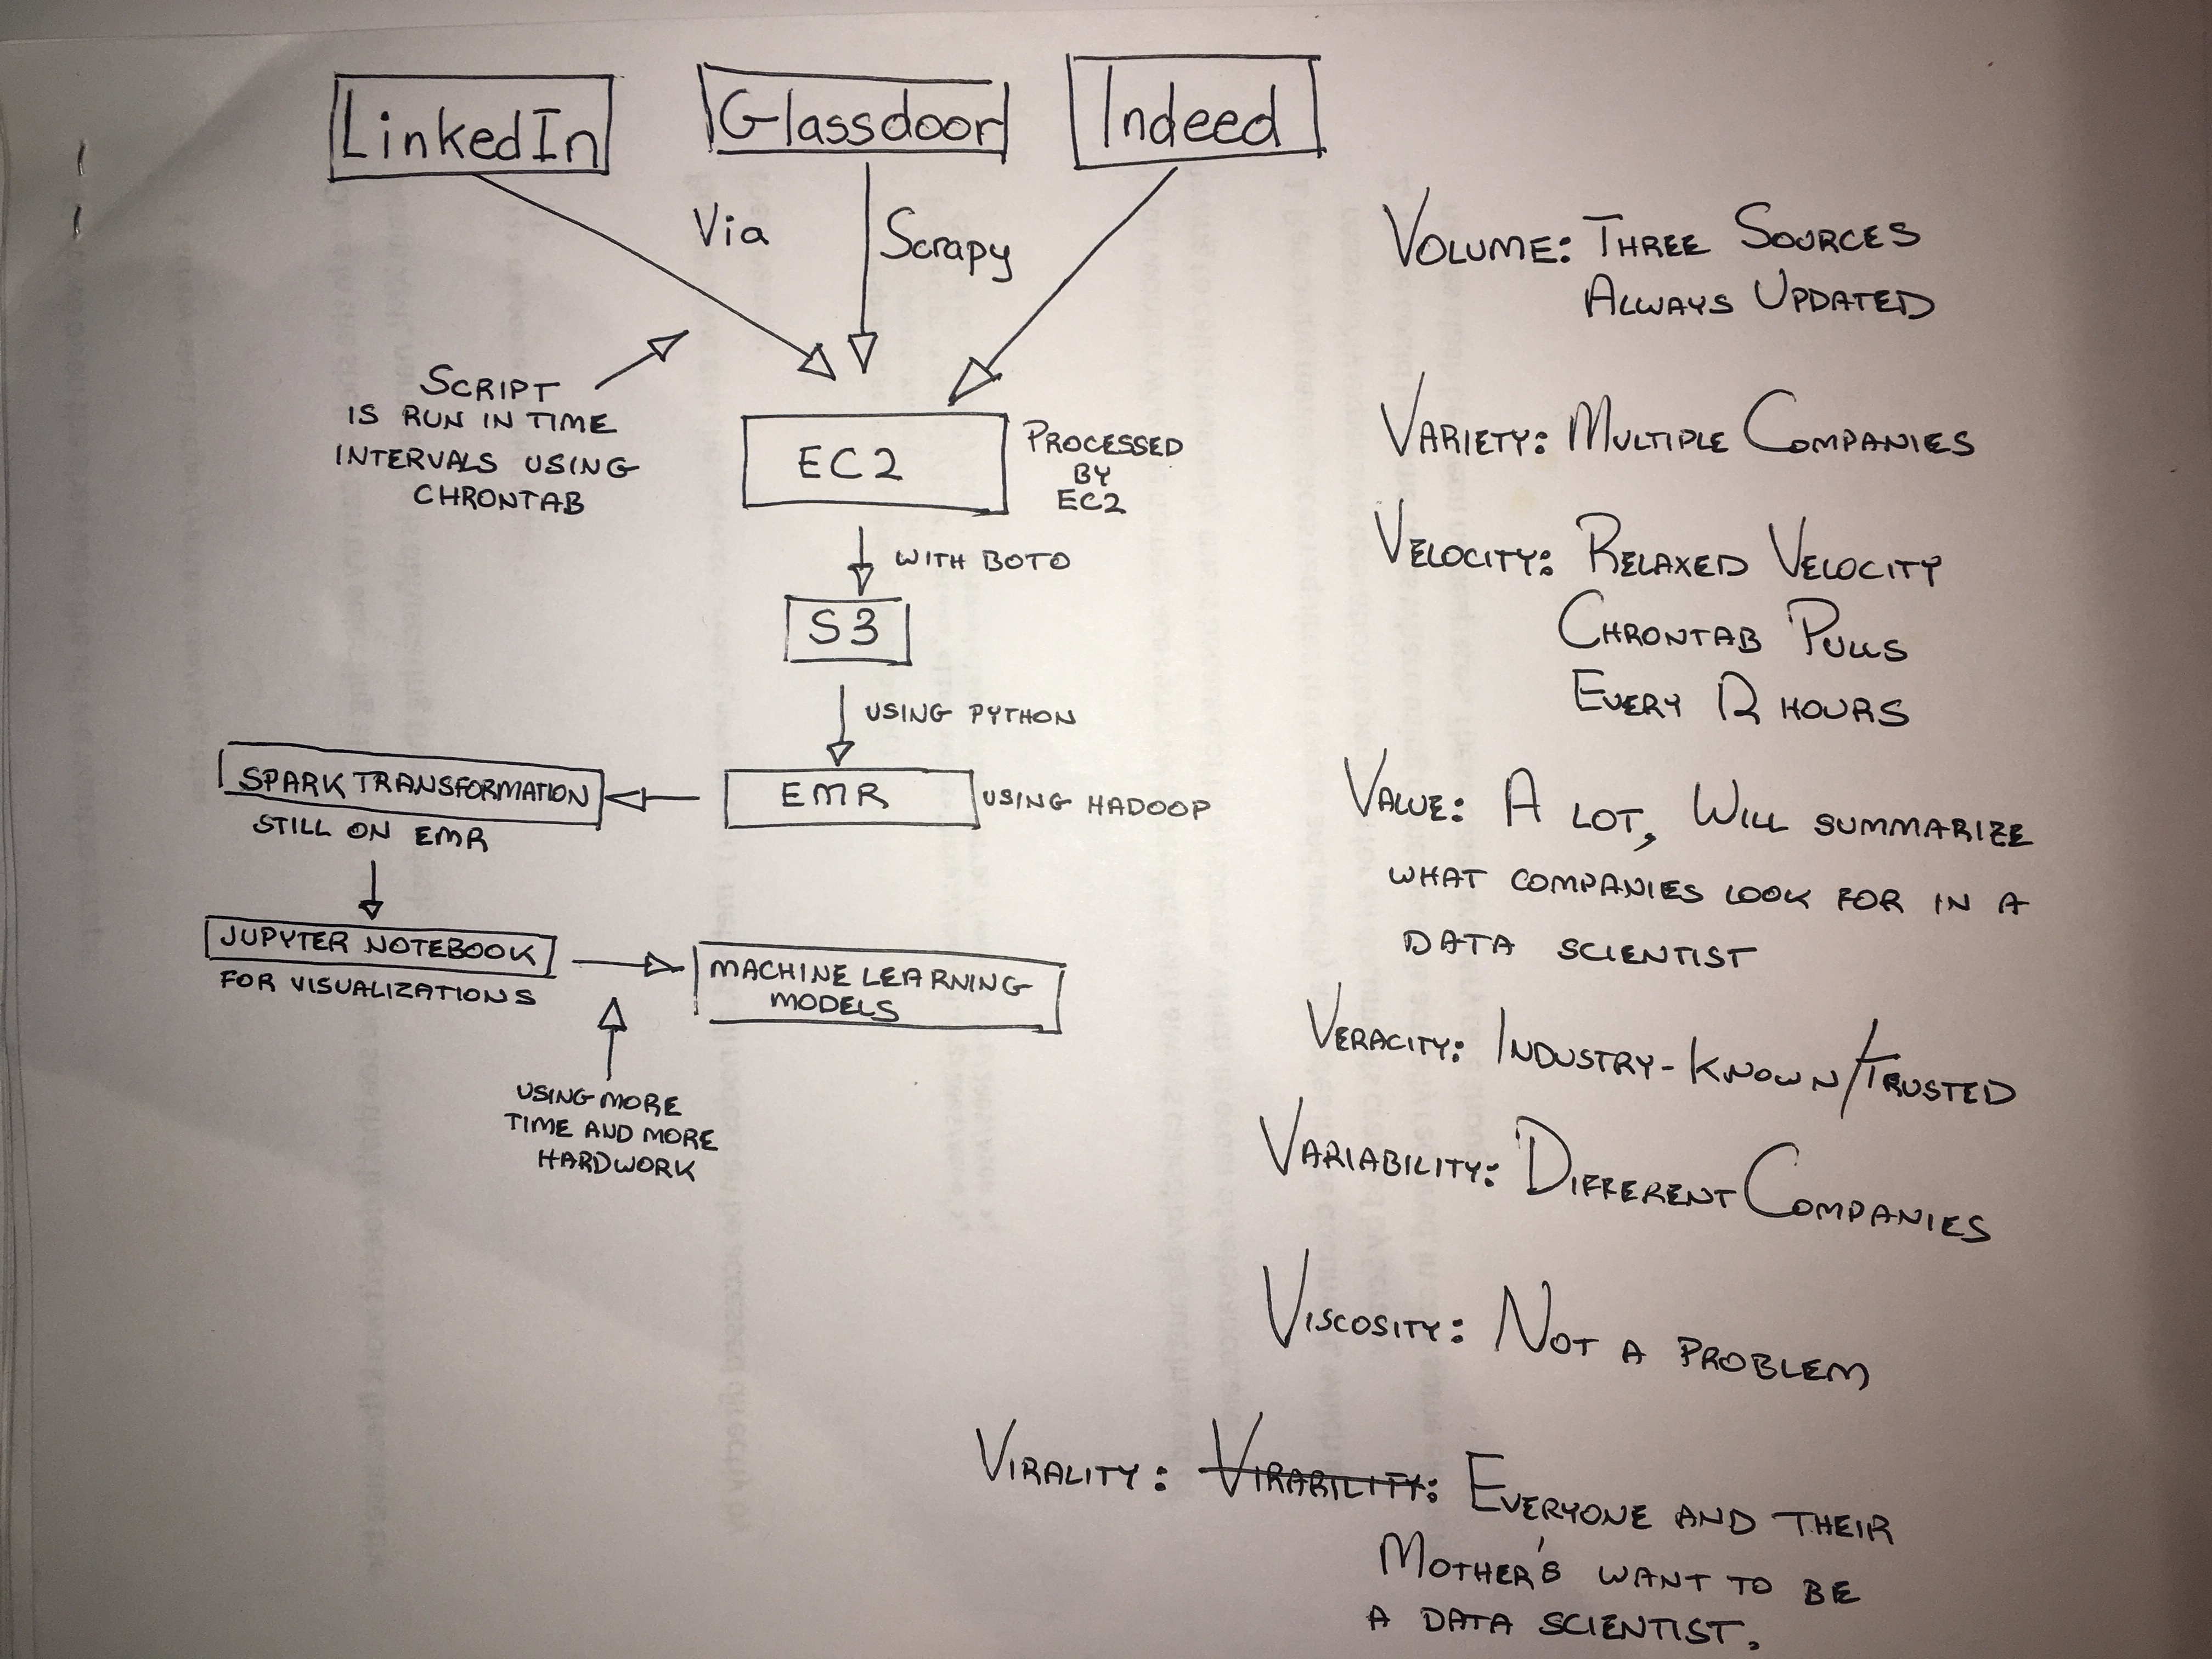 LinkedIn
Glassdoor
Indeed
Via
Scrapy
SCRIPT
IS RUN IN TIME
INTERVALS USING
CHRONTAB
EC2
PROCESSED
BY
EC2
WITH BOTO
S3
USING PYTHON
EMR
USING HADOOP
SPARK TRANSFORMATION
STILL ON EMR
JUPYTER NOTEBOOK
FOR VISUALIZATIONS
MACHINE LEARNING
MODELS
USING MORE
TIME AND MORE
HARDWORK
VOLUME: THREE SOURCES
ALWAYS UPDATED
VARIETY: MULTIPLE COMPANIES
VELOCITY: RELAXED VELOCITY
CHRONTAB PULLS
EVERY 12 HOURS
VALUE: A LOT, WILL SUMMARIZE
WHAT COMPANIES LOOK FOR IN A
DATA SCIENTIST
VERACITY: INDUSTRY-KNOWN/TRUSTED
VARIABILITY: DIFFERENT COMPANIES
VISCOSITY: NOT A PROBLEM
VIRALITY: VIRABILITY: EVERYONE AND THEIR
MOTHER'S WANT TO BE
A DATA SCIENTIST.